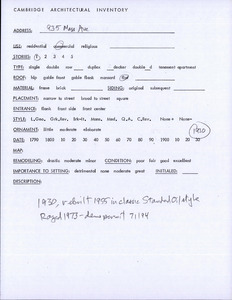 CAMBRIDGE ARCHITECTURAL INVENTORY
ADDRESS: 935 Mass Ave
USE: residential commercial religious
STORIES: 1 2 3 4 5
TYPE: single double row duplex decker double d tenement apartment
ROOF: hip gable front gable flank mansard flat
MATERIAL: frame brick SIDING: original subsequent
PLACEMENT: narrow to street broad to street square
ENTRANCE: flank front side front center
STYLE: L.Geo, Grk.Rev, Brkt, Mans, Med, Q.A, C.Rev, None
ORNAMENT: little moderate elaborate 1930
DATE: 1790 1800 10 20 30 40 50 60 70 80 90 1900 10 20 30
MAP:
REMODELING: drastic moderate minor CONDITION: poor fair good excellent
IMPORTANCE TO SETTING: detrimental none moderate great INITIALED:
DESCRIPTION:
1930, rebuilt 1955 in classic Standard Oil style
Razed 1973 - demo permit 71194